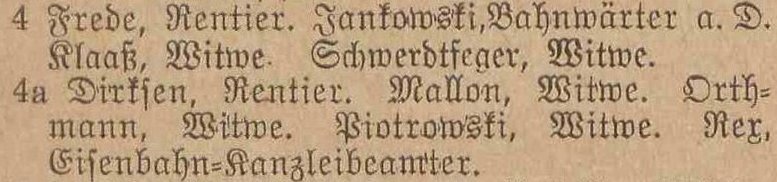 4 Frede, Rentier. Jankowski, Bahnwärter a. D.
Klaaß, Witwe. Schwerdtfeger, Witwe.
4a Dirksen, Rentier. Mallon, Witwe. Orth-
mann, Witwe. Piotrowski, Witwe. Rex,
Eisenbahn-Kanzleibeamter.